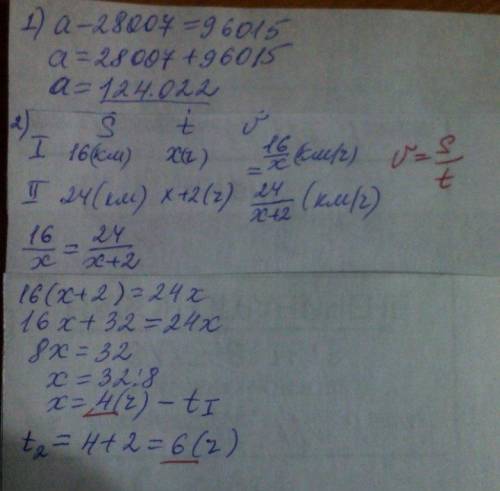 1) a-28007=96015
a=28007+96015
a=124.022
2) S t v
I 16(км) x(ч) =16/x(км/ч) v=S/t
II 24(км) x+2(ч) 24/x+2(км/ч)
16/x=24/x+2
16(x+2)=24x
16x+32=24x
8x=32
x=32:8
x=4(ч)-tI
t2=4+2=6(ч)